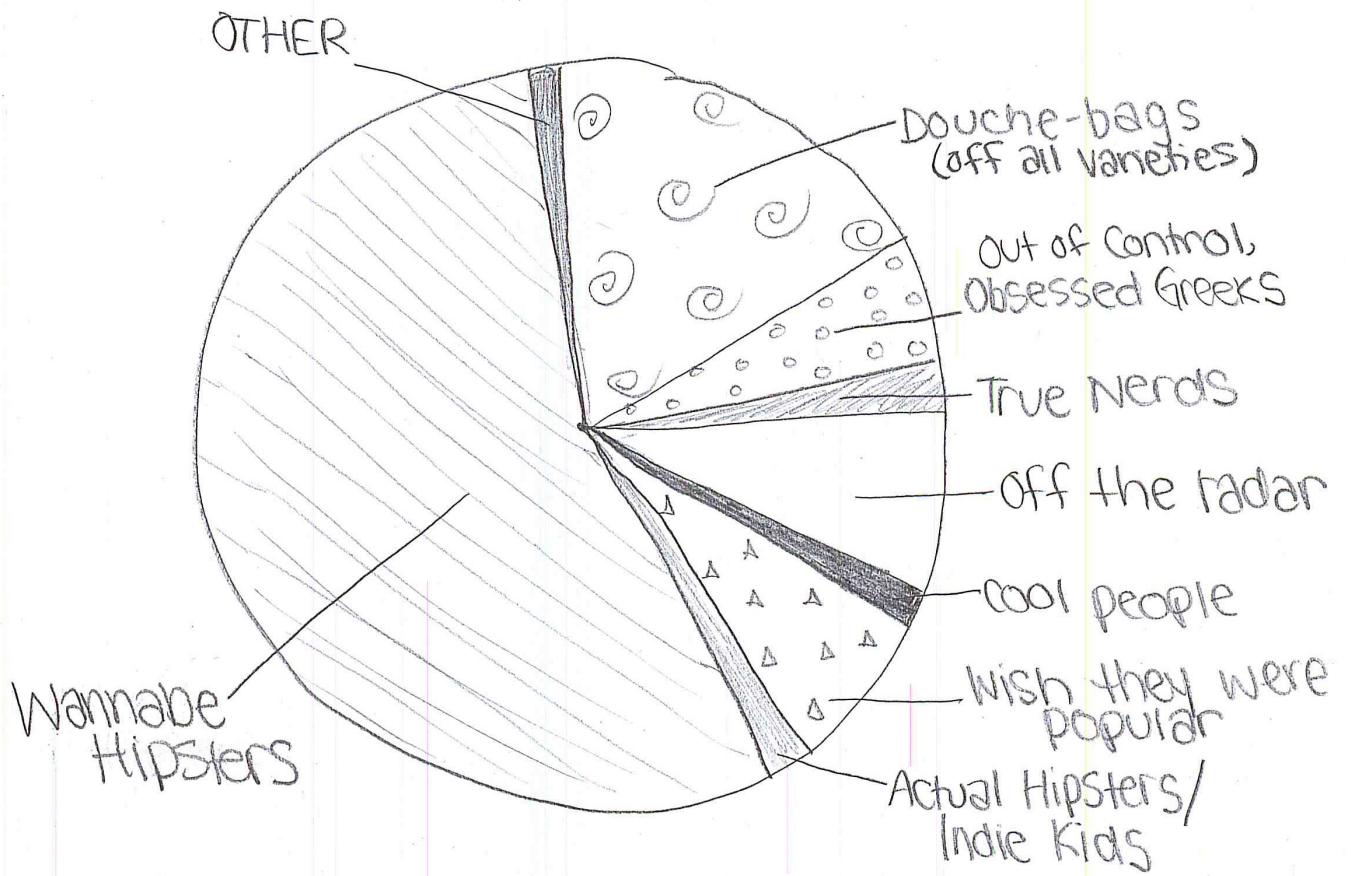 OTHER
Douche-bags
(off all varieties)
Out of Control,
Obsessed Greeks
True Nerds
Off the radar
Cool people
Wish they were
popular
Actual Hipsters/
Indie Kids
Wannabe
Hipsters